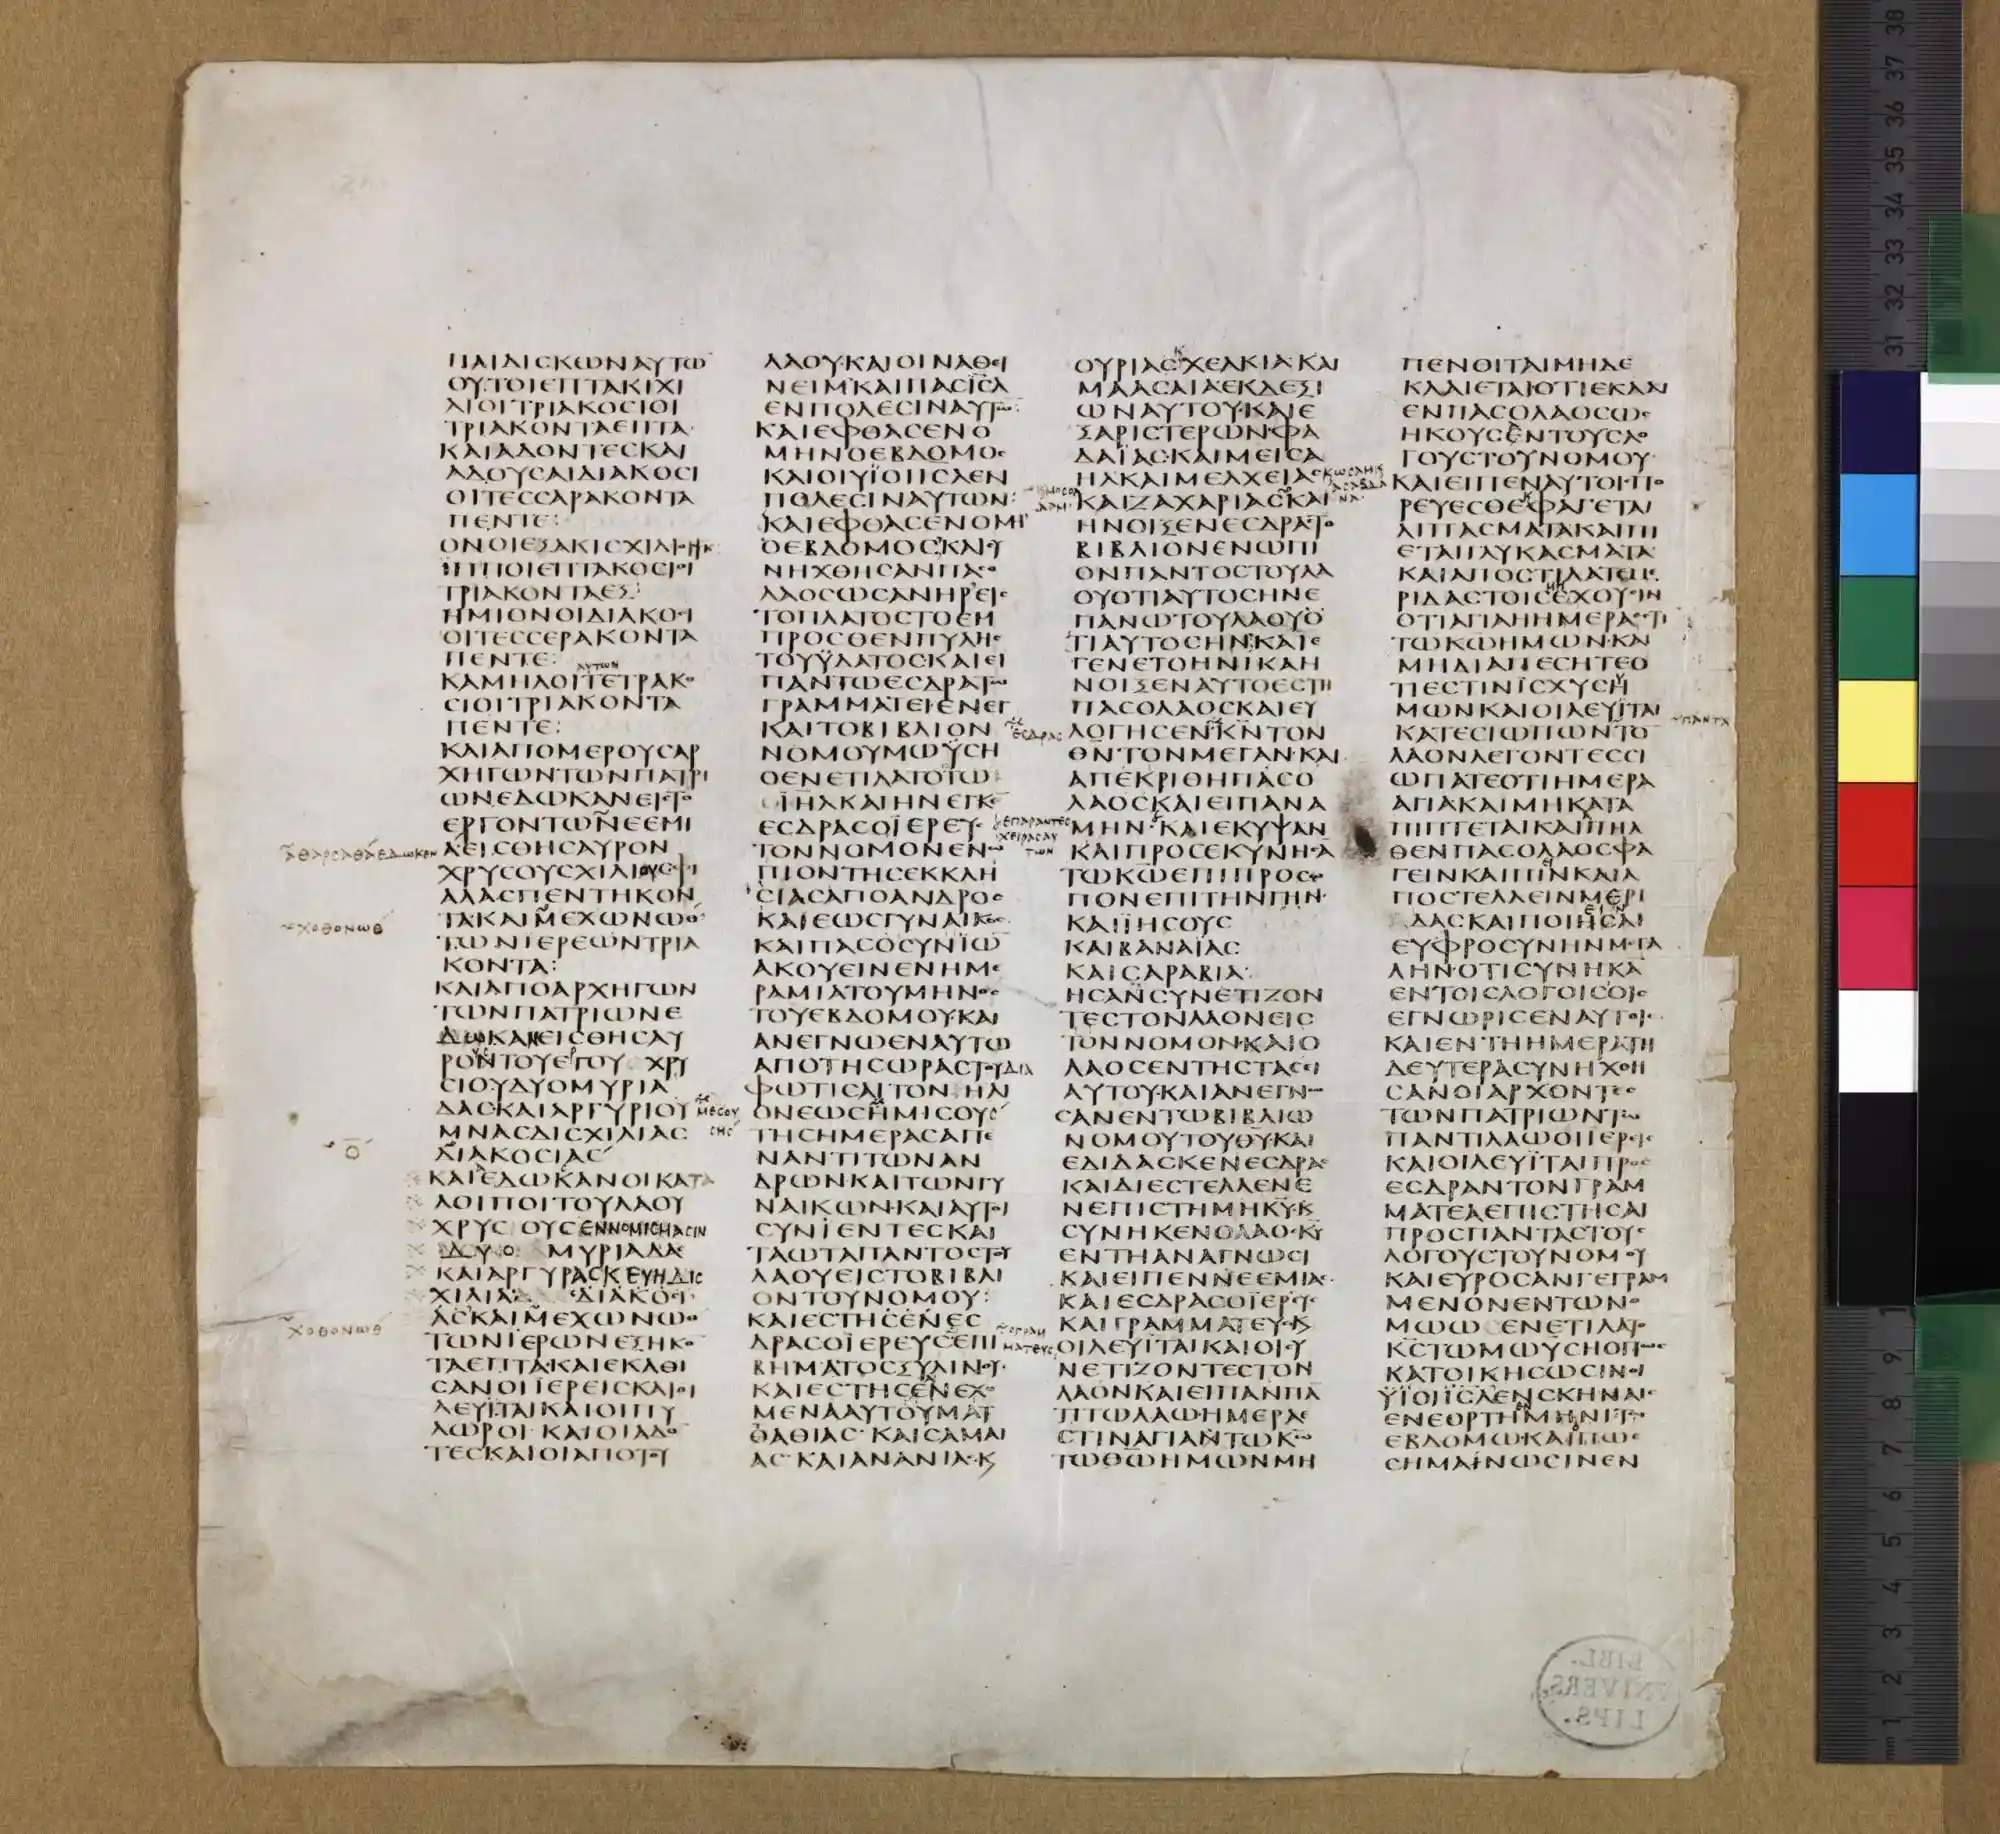 ΠΑΙΔΙϹΚΩΝΑΥΤΩ
ΟΥΤΟΙΕΠΤΑΚΙΧΙ
ΛΙΟΙΤΡΙΑΚΟϹΙΟΙ
ΤΡΙΑΚΟΝΤΑΕΠΤΑ
ΚΑΙΑΔΟΝΤΕϹΚΑΙ
ΑΔΟΥϹΑΙΔΙΑΚΟϹΙ
ΟΙΤΕϹϹΑΡΑΚΟΝΤΑ
ΠΕΝΤΕ:
ΟΝΟΙΕΞΑΚΙϹΧΙΛΙΟΙ
ΙΠΠΟΙΕΠΤΑΚΟϹΙΟΙ
ΤΡΙΑΚΟΝΤΑΕΞ:
ΗΜΙΟΝΟΙΔΙΑΚΟϹΙ
ΟΙΤΕϹϹΕΡΑΚΟΝΤΑ
ΠΕΝΤΕ:
ΑΥΤΩΝ
ΚΑΜΗΛΟΙΤΕΤΡΑΚΟ
ϹΙΟΙΤΡΙΑΚΟΝΤΑ
ΠΕΝΤΕ:
ΚΑΙΑΠΟΜΕΡΟΥϹΑΡ
ΧΗΓΩΝΤΩΝΠΑΤΡΙ
ΩΝΕΔΩΚΑΝΕΙϹΤΟ
ΕΡΓΟΝΤΩΝΕΕΜΙ
ΑΕΙϹΘΗϹΑΥΡΟΝ
ΧΡΥϹΟΥϹΧΙΛΙΟΥϹΦΙ
ΑΛΑϹΠΕΝΤΗΚΟΝ
ΤΑΚΑΙΜΕΧΩΝΩΘ
ΧΟΘΟΝΩΘ
ΤΩΝΙΕΡΕΩΝΤΡΙΑ
ΚΟΝΤΑ:
ΚΑΙΑΠΟΑΡΧΗΓΩΝ
ΤΩΝΠΑΤΡΙΩΝΕ
ΔΩΚΑΝΕΙϹΘΗϹΑΥ
ΡΟΝΤΟΥΕΡΓΟΥ ΧΡΥ
ϹΙΟΥΔΥΟΜΥΡΙΑ
ΔΑϹΚΑΙΑΡΓΥΡΙΟΥ
ΜΝΑϹΔΙϹΧΙΛΙΑϹ
ΔΙΑΚΟϹΙΑϹ
ΚΑΙΕΔΩΚΑΝΟΙΚΑΤΑ
ΛΟΙΠΟΙΤΟΥΛΑΟΥ
ΧΡΥϹΟΥϹΕΝΝΟΜΙϹΜΑϹΙΝ
ΔΥΟ ΜΥΡΙΑΔΑϹ
ΚΑΙΑΡΓΥΡΑϹΚΕΥΗΔΙϹ
ΧΙΛΙΑ ΔΙΑΚΟϹΙ
ΑϹΚΑΙΜΕΧΩΝΩΘ
ΧΟΘΟΝΩΘ
ΤΩΝΙΕΡΩΝΕΞΗΚΟ
ΤΑΕΠΤΑΚΑΙΕΚΑΘΙ
ϹΑΝΟΙΙΕΡΕΙϹΚΑΙΟΙ
ΛΕΥΙΤΑΙΚΑΙΟΙΠΥ
ΛΩΡΟΙ ΚΑΙΟΙΑΔΟ
ΤΕϹΚΑΙΟΙΑΠΟΤΟΥ
ΛΑΟΥΚΑΙΟΙΝΑΘΕΙ
ΝΕΙΜΚΑΙΠΑϹΙϹΛ
ΕΝΠΟΛΕϹΙΝΑΥΤΩ:
ΚΑΙΕΦΘΑϹΕΝΟ
ΜΗΝΟΕΒΔΟΜΟϹ
ΚΑΙΟΙΥΙΟΙΙϹΛΕΝ
ΠΟΛΕϹΙΝΑΥΤΩΝ:
ΚΑΙΕΦΘΑϹΕΝΟΜΗ
ΟΕΒΔΟΜΟϹΚΑΙϹΥ
ΝΗΧΘΗϹΑΝΠΑϹΟ
ΛΑΟϹΩϹΑΝΗΡΕΙϹ
ΤΟΠΛΑΤΟϹΤΟΕΜ
ΠΡΟϹΘΕΝΠΥΛΗϹ
ΤΟΥΫΔΑΤΟϹΚΑΙΕΙ
ΠΑΝΤΩΕϹΔΡΑΤΩ
ΓΡΑΜΜΑΤΕΙΕΝΕΓ
ΚΑΙΤΟΒΙΒΛΙΟΝ
ΝΟΜΟΥΜΩΫϹΗ
ΟΕΝΕΤΙΛΑΤΟΤΩ
ΙΗΛΚΑΙΗΝΕΓΚΕ
ΕϹΔΡΑϹΟΪΕΡΕΥϹ
ΤΟΝΝΟΜΟΝΕΝΩ
ΠΙΟΝΤΗϹΕΚΚΛΗ
ϹΙΑϹΑΠΟΑΝΔΡΟϹ
ΚΑΙΕΩϹΓΥΝΑΙΚΟϹ
ΚΑΙΠΑϹΟϹΥΝΙΩ
ΑΚΟΥΕΙΝΕΝΗΜΕ
ΡΑΜΙΑΤΟΥΜΗΝΟϹ
ΤΟΥΕΒΔΟΜΟΥΚΑΙ
ΑΝΕΓΝΩΕΝΑΥΤΩ
ΑΠΟΤΗϹΩΡΑϹΤΟΥΔΙΑ
ΦΩΤΙϹΑΙΤΟΝ ΗΛΙ
ΟΝΕΩϹΗΜΙϹΟΥϹ
ΤΗϹΗΜΕΡΑϹΑΠΕ
ΝΑΝΤΙΤΩΝΑΝ
ΔΡΩΝΚΑΙΤΩΝΓΥ
ΝΑΙΚΩΝΚΑΙΑΥΤΟΙ
ϹΥΝΙΕΝΤΕϹΚΑΙ
ΤΑΩΤΑΠΑΝΤΟϹΤΟΥ
ΛΑΟΥΕΙϹΤΟΒΙΒΛΙ
ΟΝΤΟΥΝΟΜΟΥ:
ΚΑΙΕϹΤΗϹΕΝΕϹ
ΔΡΑϹΟΪΕΡΕΥϹΕΠΙ
ΒΗΜΑΤΟϹΞΥΛΙΝΟΥ
ΚΑΙΕϹΤΗϹΕΝΕΧΟ
ΜΕΝΑΑΥΤΟΥΜΑΤ
ΘΑΘΙΑϹ ΚΑΙϹΑΜΑΙ
ΑϹ ΚΑΙΑΝΑΝΙΑϹΚ
ΟΥΡΙΑϹΧΕΛΚΙΑ ΚΑΙ
ΜΑΑϹΑΙΑΕΚΔΕΞΙ
ΩΝΑΥΤΟΥΚΑΙΕ
ΞΑΡΙϹΤΕΡΩΝΦΑ
ΔΑΪΑϹΚΑΙΜΕΙϹΑ
ΗΛΚΑΙΜΕΛΧΕΙΑϹ
ΚΑΙΖΑΧΑΡΙΑϹΚΑΙ
ΗΝΟΙΞΕΝΕϹΔΡΑϹΤΟ
ΒΙΒΛΙΟΝΕΝΩΠΙ
ΟΝΠΑΝΤΟϹΤΟΥΛΑ
ΟΥΟΤΙΑΥΤΟϹΗΝΕ
ΠΑΝΩΤΟΥΛΑΟΥΟ
ΤΙΑΥΤΟϹΗΝΚΑΙΕ
ΓΕΝΕΤΟΗΝΙΚΑΗ
ΝΟΙΞΕΝΑΥΤΟΕϹΤΗ
ΠΑϹΟΛΑΟϹΚΑΙΕΥ
ΛΟΓΗϹΕΝΚΝΤΟΝ
ΘΝ ΤΟΝΜΕΓΑΝ ΚΑΙ
ΑΠΕΚΡΙΘΗΠΑϹΟ
ΛΑΟϹΚΑΙΕΙΠΑΝΑ
ΜΗΝ ΚΑΙΕΚΥΨΑΝ
ΚΑΙΠΡΟϹΕΚΥΝΗϹΑ
ΤΩΚΩΕΠΙΠΡΟϹΩ
ΠΟΝΕΠΙΤΗΝΓΗΝ
ΚΑΙΪΗϹΟΥϹ
ΚΑΙΒΑΝΑΪΑϹ
ΚΑΙϹΑΡΑΒΙΑ
ΗϹΑΝϹΥΝΕΤΙΖΟΝ
ΤΕϹΤΟΝΛΑΟΝΕΙϹ
ΤΟΝΝΟΜΟΝΚΑΙΟ
ΛΑΟϹΕΝΤΗϹΤΑϹΕΙ
ΑΥΤΟΥΚΑΙΑΝΕΓΝΩ
ϹΑΝΕΝΤΩΒΙΒΛΙΩ
ΝΟΜΟΥΤΟΥΘΥΚΑΙ
ΕΔΙΔΑϹΚΕΝΕϹΔΡΑϹ
ΚΑΙΔΙΕϹΤΕΛΛΕΝΕ
ΝΕΠΙϹΤΗΜΗΚΥΚ
ϹΥΝΗΚΕΝΟΛΑΟϹΚΥ
ΕΝΤΗΑΝΑΓΝΩϹΙ
ΚΑΙΕΙΠΕΝΝΕΕΜΙΑϹ
ΚΑΙΕϹΔΡΑϹΟΪΕΡΕΥϹ
ΚΑΙΓΡΑΜΜΑΤΕΥϹΚ
ΟΙΛΕΥΪΤΑΙΚΑΙΟΙϹΥ
ΝΕΤΙΖΟΝΤΕϹΤΟΝ
ΛΑΟΝΚΑΙΕΙΠΑΝΠΑ
ΠΤΩΛΑΩΗΜΕΡΑΕ
ϹΤΙΝΑΓΙΑΝΤΩΚΩ
ΤΩΘΩΗΜΩΝΜΗ
ΠΕΝΘΙΤΑΙΜΗΔΕ
ΚΛΑΙΕΤΑΙΟΤΙΕΚΛΑΙ
ΕΝΠΑϹΟΛΑΟϹΩϹ
ΗΚΟΥϹΕΝΤΟΥϹΛΟ
ΓΟΥϹΤΟΥΝΟΜΟΥ
ΚΑΙΕΙΠΕΝΑΥΤΟΙϹΠΟ
ΡΕΥΕϹΘΕΦΑΓΕΤΑΙ
ΛΙΠΑϹΜΑΤΑΚΑΙΠΙ
ΕΤΑΙΓΛΥΚΑϹΜΑΤΑ
ΚΑΙΑΠΟϹΤΙΛΑΤΕΜΕ
ΡΙΔΑϹΤΟΙϹΕΧΟΥϹΙΝ
ΟΤΙΑΓΙΑΗΗΜΕΡΑΕϹΤΙ
ΤΩΚΩΗΜΩΝΚΑΙ
ΜΗΔΙΑΠΕϹΗΤΕΟ
ΤΙΕϹΤΙΝΙϹΧΥϹΗ
ΜΩΝΚΑΙΟΙΛΕΥΪΤΑΙ
ΚΑΤΕϹΙΩΠΩΝΤΟ
ΛΑΟΝΛΕΓΟΝΤΕϹϹΙ
ΩΠΑΤΕΟΤΙΗΜΕΡΑ
ΑΓΙΑΚΑΙΜΗΚΑΤΑ
ΠΙΠΤΕΤΑΙΚΑΙΑΠΗΛ
ΘΕΝΠΑϹΟΛΑΟϹΦΑ
ΓΕΙΝΚΑΙΠΙΝΚΑΙΑ
ΠΟϹΤΕΛΛΕΙΝΜΕΡΙ
ΔΑϹΚΑΙΠΟΙΗϹΑΙ
ΕΥΦΡΟϹΥΝΗΝΜΕΓΑ
ΛΗΝΟΤΙϹΥΝΗΚΑ
ΕΝΤΟΙϹΛΟΓΟΙϹΟΙϹ
ΕΓΝΩΡΙϹΕΝΑΥΤΟΙϹ
ΚΑΙΕΝΤΗΗΜΕΡΑΤΗ
ΔΕΥΤΕΡΑϹΥΝΗΧΘΗ
ϹΑΝΟΙΑΡΧΟΝΤΕϹ
ΤΩΝΠΑΤΡΙΩΝΤΩ
ΠΑΝΤΙΛΑΩΟΙΙΕΡΕΙϹ
ΚΑΙΟΙΛΕΥΪΤΑΙΠΡΟϹ
ΕϹΔΡΑΝΤΟΝΓΡΑΜ
ΜΑΤΕΑΕΠΙϹΤΗϹΑΙ
ΠΡΟϹΠΑΝΤΑϹΤΟΥϹ
ΛΟΓΟΥϹΤΟΥΝΟΜΟΥ
ΚΑΙΕΥΡΟϹΑΝΓΕΓΡΑΜ
ΜΕΝΟΝΕΝΤΩΝΟ
ΜΩΩ ΕΝΕΤΙΛΑΤΟ
ΚϹΤΩΜΩΥϹΗΟΠΩϹ
ΚΑΤΟΙΚΗϹΩϹΙΝΟΙ
ΫΪΟΙΙϹΛΕΝϹΚΗΝΑΙϹ
ΕΝΕΟΡΤΗΜΗΝΙΤΩ
ΕΒΔΟΜΩΚΑΙΠΩϹ
ϹΗΜΑΙΝΩϹΙΝΕΝ
LIBL.
VNIVERS.
LIPS.